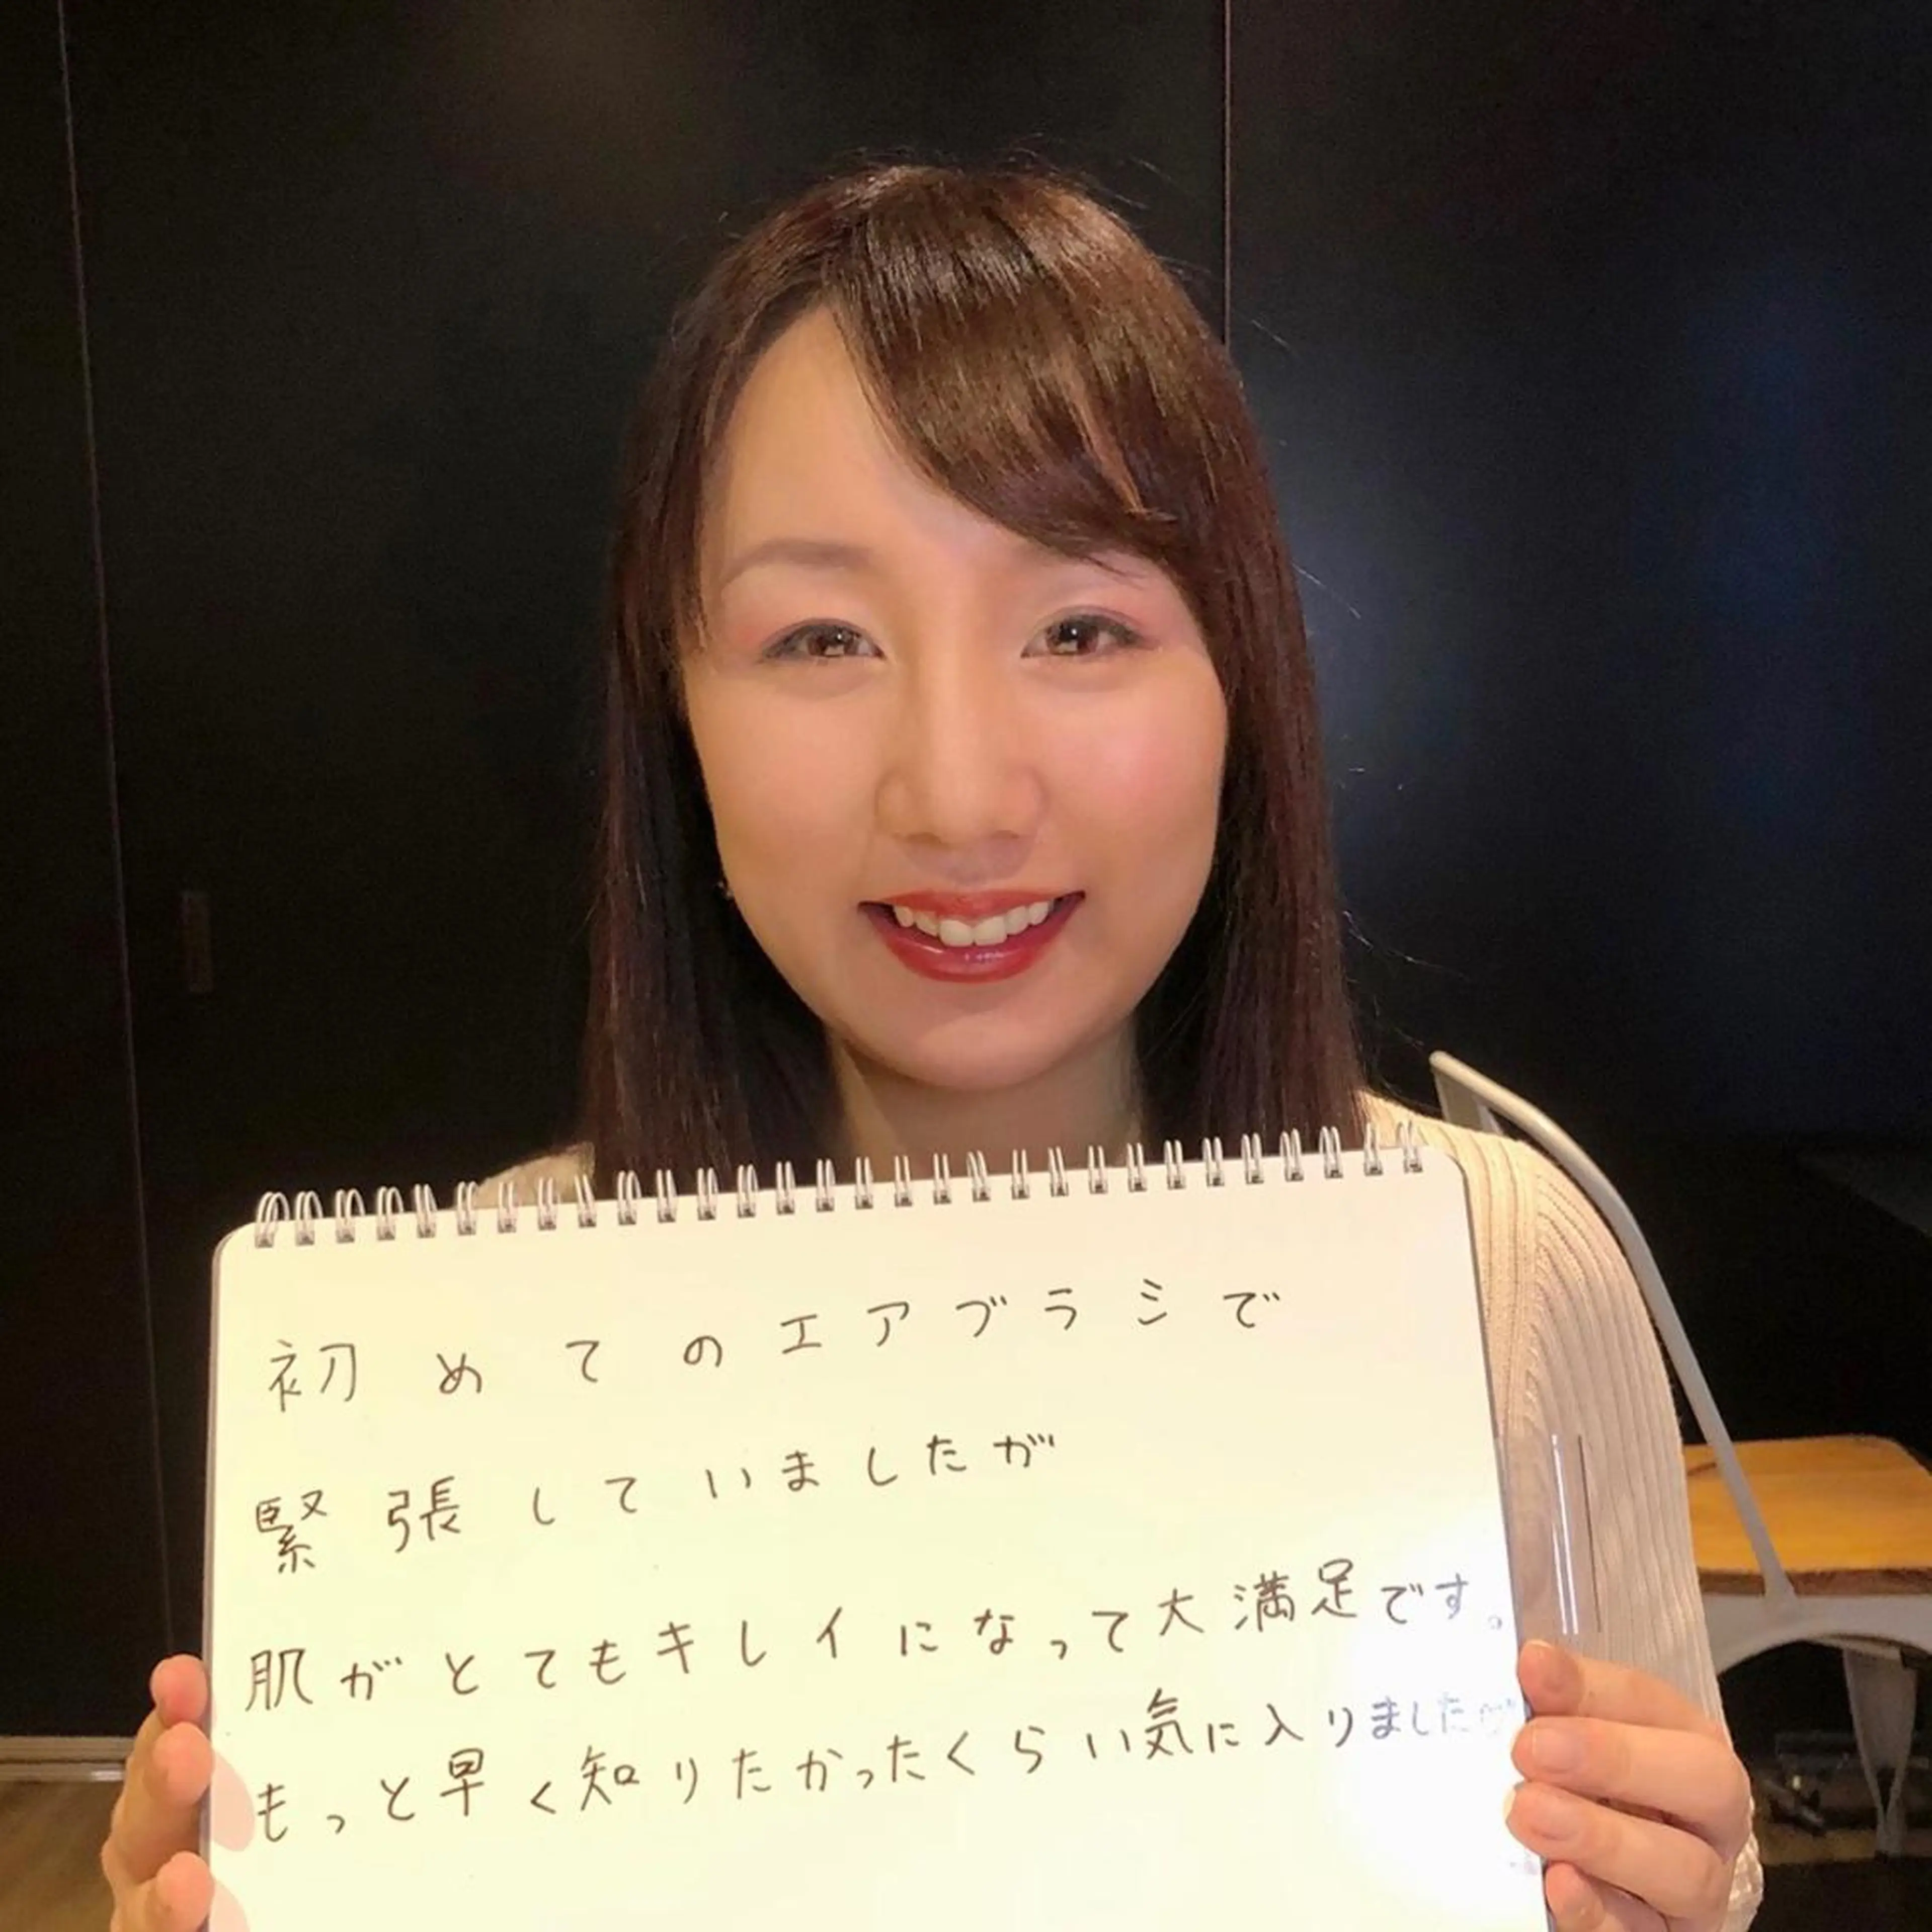 初めてのエアブラシで
緊張していましたが
肌がとてもキレイになって大満足です。
もっと早く知りたかったくらい気に入りました♡